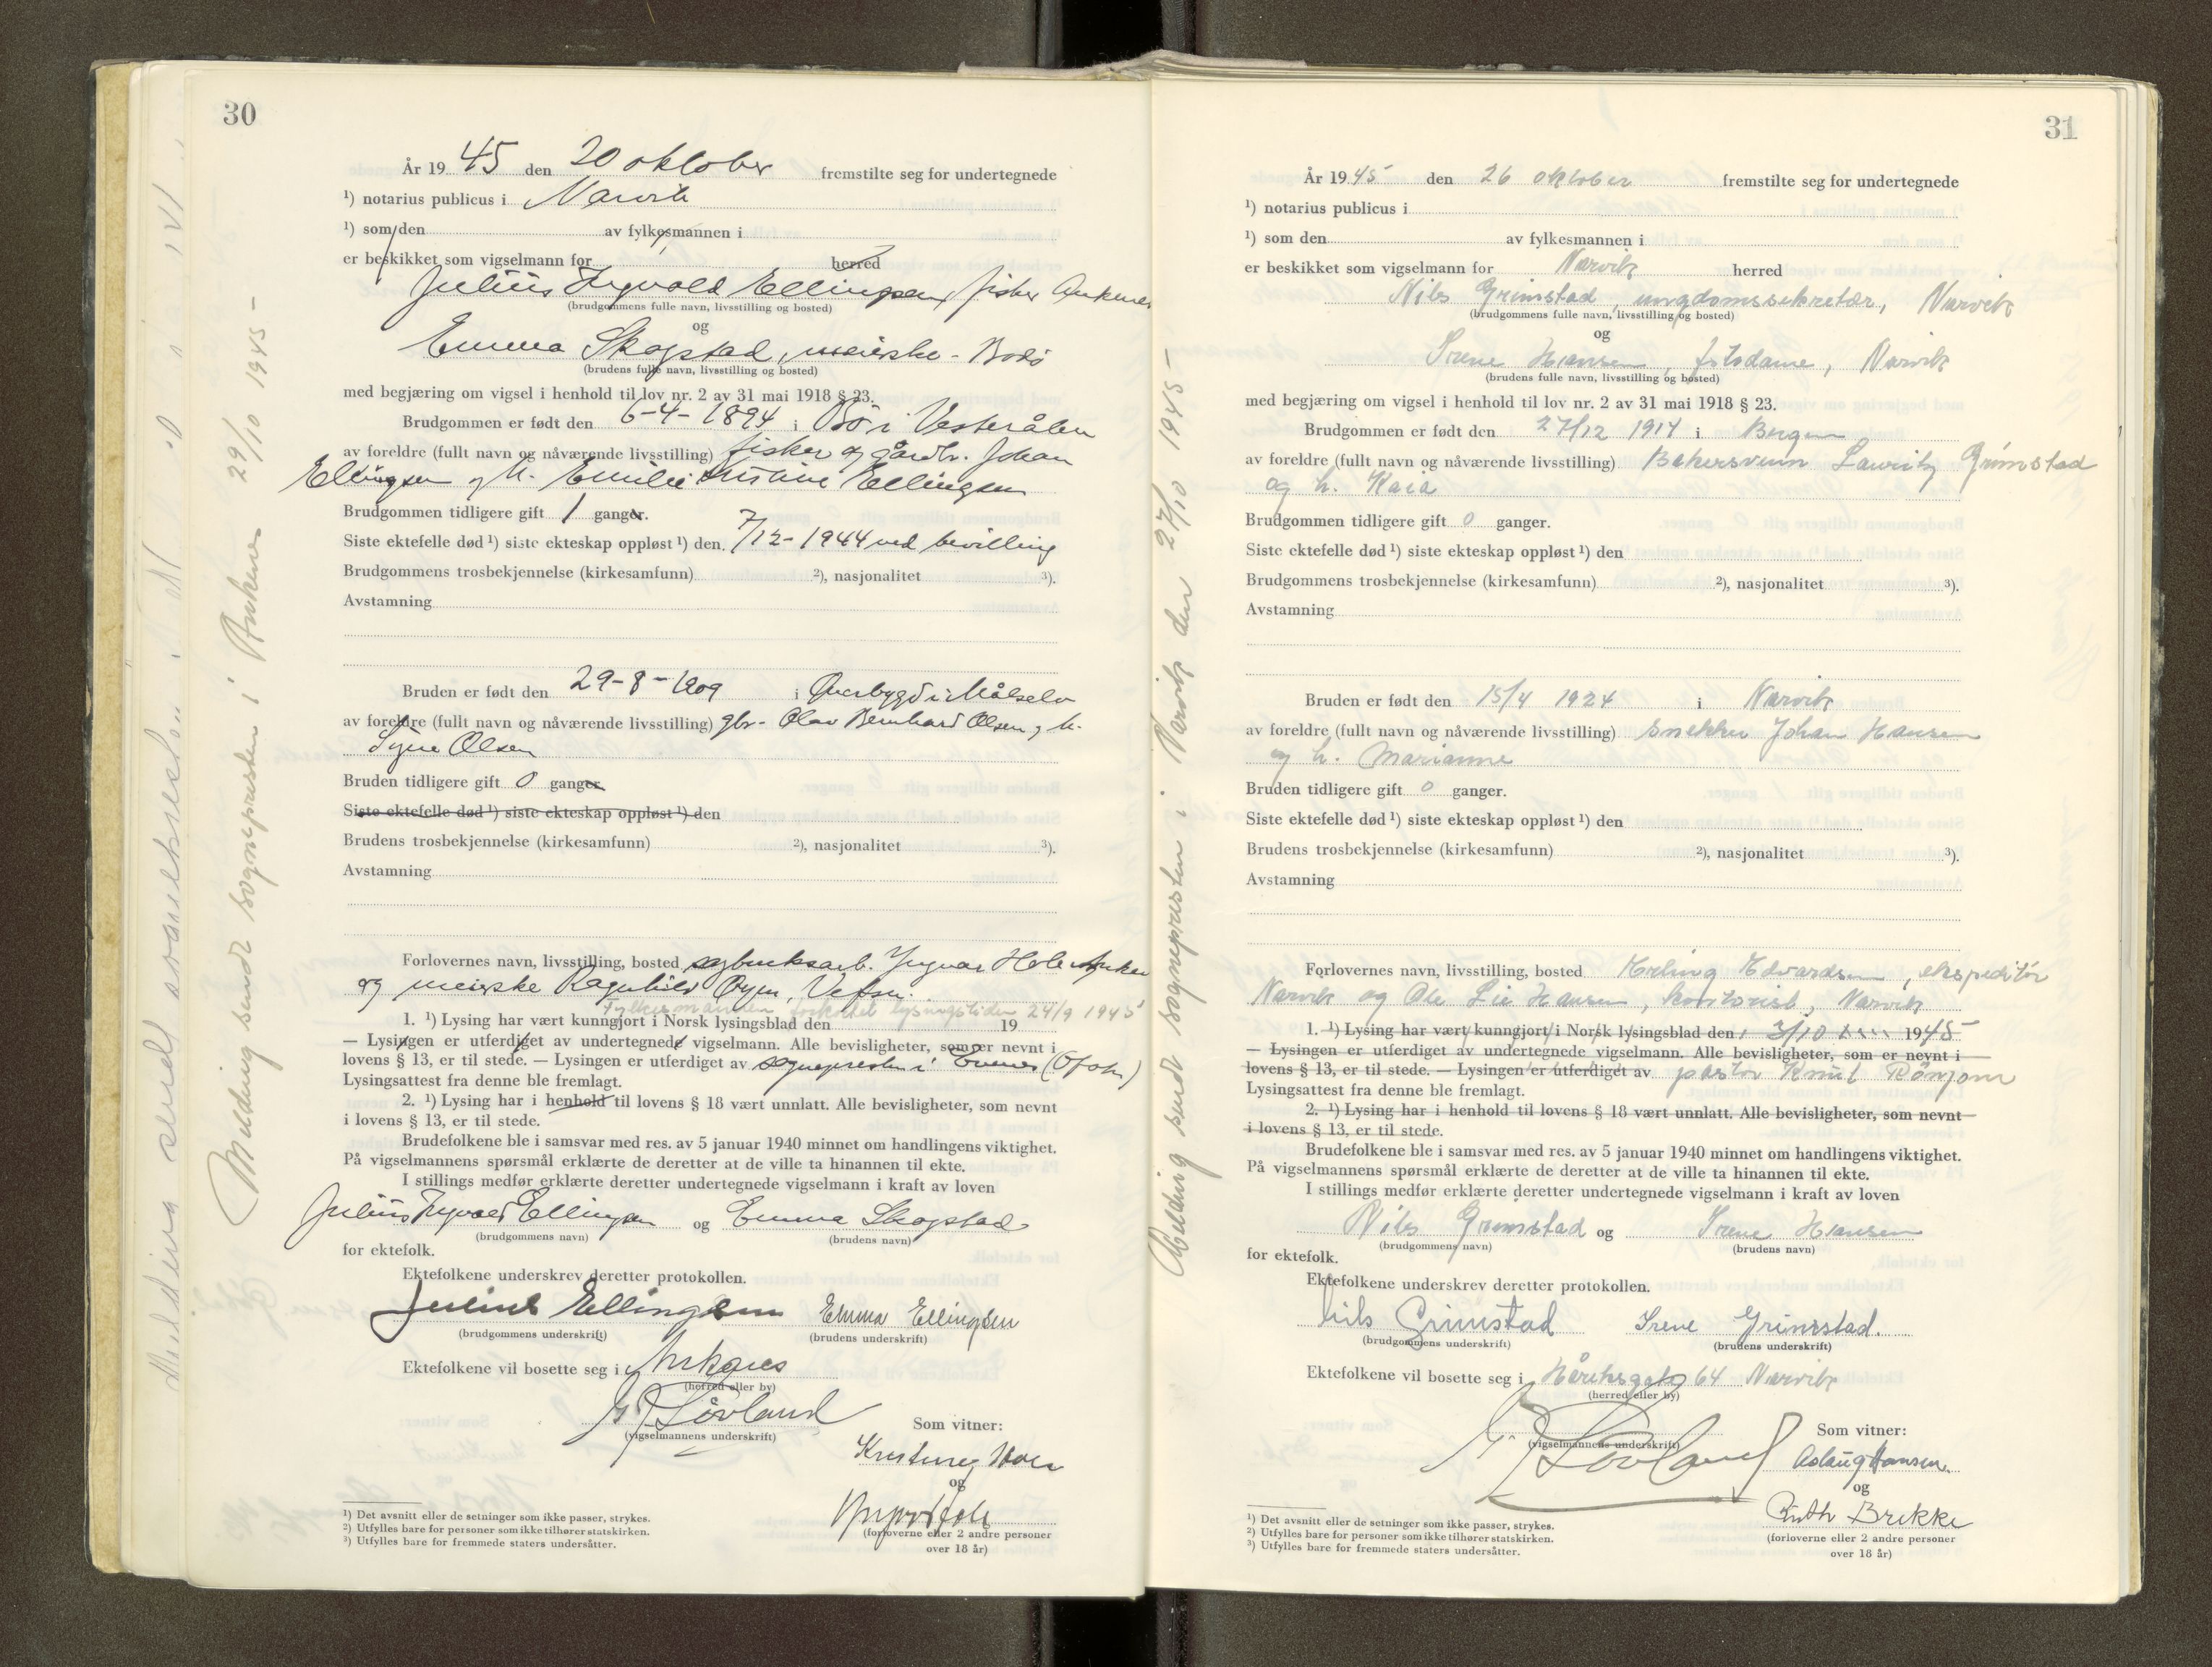 30
År 1945 den 20 oktober fremstilte seg for undertegnede
¹) notarius publicus i Narvik
¹) som den av fylkesmannen i
er beskikket som vigselmann for herred
Julius Ingvald Ellingsen, fisker Ankenes
(brudgommens fulle navn, livsstilling og bosted)
og
Emma Skogstad, meierske - Bodö
(brudens fulle navn, livsstilling og bosted)
med begjæring om vigsel i henhold til lov nr. 2 av 31 mai 1918 § 23.
Brudgommen er født den 6-4-1894 i Bö i Vesterålen
av foreldre (fullt navn og nåværende livsstilling) fisker og gårdbr. Johan
Ellingsen og h. Emilie Kristine Ellingsen
Brudgommen tidligere gift 1 ganger.
Siste ektefelle død ¹) siste ekteskap oppløst ¹) den 7/12-1944 ved bevilling
Brudgommens trosbekjennelse (kirkesamfunn) ²), nasjonalitet ³).
Avstamning
Bruden er født den 29-8-1909 i Överbygd i Målselv
av foreldre (fullt navn og nåværende livsstilling) gbr. Olav Bernhard Olsen og h.
Signe Olsen
Bruden tidligere gift 0 ganger
Siste ektefelle død ¹) siste ekteskap oppløst ¹) den
Brudens trosbekjennelse (kirkesamfunn) ²), nasjonalitet ³).
Avstamning
Forlovernes navn, livsstilling, bosted sagbruksarb. Yngvar Hole
og meierske Ragnhild Öyen, Vefsn.
Fylkesmannen forkortet lysingstiden 24/9 1945
1. ¹) Lysing har vært kunngjort i Norsk lysingsblad den 19
— Lysingen er utferdiget av undertegnede vigselmann. Alle bevisligheter, som er nevnt i
lovens § 13, er til stede. — Lysingen er utferdiget av sognepresten i Evenes (Ofoten)
Lysingsattest fra denne ble fremlagt.
2. ¹) Lysing har i henhold til lovens § 18 vært unnlatt. Alle bevisligheter, som nevnt
i lovens § 13, er til stede.
Brudefolkene ble i samsvar med res. av 5 januar 1940 minnet om handlingens viktighet.
På vigselmannens spørsmål erklærte de deretter at de ville ta hinannen til ekte.
I stillings medfør erklærte deretter undertegnede vigselmann i kraft av loven
Julius Ingvald Ellingsen og Emma Skogstad
(brudgommens navn) (brudens navn)
for ektefolk.
Ektefolkene underskrev deretter protokollen.
Julius Ellingsen Emma Ellingsen
(brudgommens underskrift) (brudens underskrift)
Ektefolkene vil bosette seg i Ankenes
(herred eller by)
Lövland
(vigselmannens underskrift)
Som vitner:
og
(forloverne eller 2 andre personer
over 18 år)
¹) Det avsnitt eller de setninger som ikke passer, strykes.
²) Utfylles bare for personer som ikke tilhører statskirken.
³) Utfylles bare for fremmede staters undersåtter.
Melding sendt sognepresten i Ankenes 29/10 1945 -
31
År 1945 den 26 oktober fremstilte seg for undertegnede
¹) notarius publicus i
¹) som den av fylkesmannen i
er beskikket som vigselmann for Narvik herred
Nils Grimstad, ungdomssekretær, Narvik
(brudgommens fulle navn, livsstilling og bosted)
og
Irene Hansen, Narvik
(brudens fulle navn, livsstilling og bosted)
med begjæring om vigsel i henhold til lov nr. 2 av 31 mai 1918 § 23.
Brudgommen er født den 27/12 1914 i Bergen
av foreldre (fullt navn og nåværende livsstilling) Bakersvenn Lauritz Grimstad
og h. Kaia
Brudgommen tidligere gift 0 ganger.
Siste ektefelle død ¹) siste ekteskap oppløst ¹) den
Brudgommens trosbekjennelse (kirkesamfunn) ²), nasjonalitet ³).
Avstamning
Bruden er født den 15/4 1924 i Narvik
av foreldre (fullt navn og nåværende livsstilling) snekker Johan Hansen
og h. Marianne
Bruden tidligere gift 0 ganger.
Siste ektefelle død ¹) siste ekteskap oppløst ¹) den
Brudens trosbekjennelse (kirkesamfunn) ²), nasjonalitet ³).
Avstamning
Forlovernes navn, livsstilling, bosted Erling Edvardsen, ekspeditör
Narvik og Ole Lie Hansen, kontorist, Narvik
1. ¹) Lysing har vært kunngjort i Norsk lysingsblad den 3/10 1945
— Lysingen er utferdiget av undertegnede vigselmann. Alle bevisligheter, som er nevnt i
lovens § 13, er til stede. — Lysingen er utferdiget av pastor Knut Rönjom
Lysingsattest fra denne ble fremlagt.
2. ¹) Lysing har i henhold til lovens § 18 vært unnlatt. Alle bevisligheter, som nevnt
i lovens § 13, er til stede.
Brudefolkene ble i samsvar med res. av 5 januar 1940 minnet om handlingens viktighet.
På vigselmannens spørsmål erklærte de deretter at de ville ta hinannen til ekte.
I stillings medfør erklærte deretter undertegnede vigselmann i kraft av loven
Nils Grimstad og Irene Hansen
(brudgommens navn) (brudens navn)
for ektefolk.
Ektefolkene underskrev deretter protokollen.
Nils Grimstad Irene Grimstad.
(brudgommens underskrift) (brudens underskrift)
Ektefolkene vil bosette seg i Håriksgate 64 Narvik
(herred eller by)
Lövland
(vigselmannens underskrift)
Som vitner:
Aslaug Hansen.
og
Ruth Brekke
(forloverne eller 2 andre personer
over 18 år)
¹) Det avsnitt eller de setninger som ikke passer, strykes.
²) Utfylles bare for personer som ikke tilhører statskirken.
³) Utfylles bare for fremmede staters undersåtter.
Melding sendt sognepresten i Narvik den 27/10 1945 -